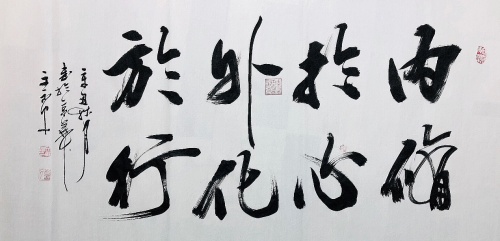 内修
於心
外化
於行
辛丑秋月
書於京華